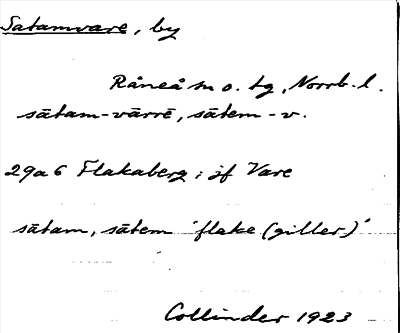 Satamvare, by
Råneå sn o. tg, Norrb. l.
sātam-vārrē, sātem-v.
29a6 Flakaberg; jf Vare
sātam, sātem 'flake (giller)'
Collinder 1923